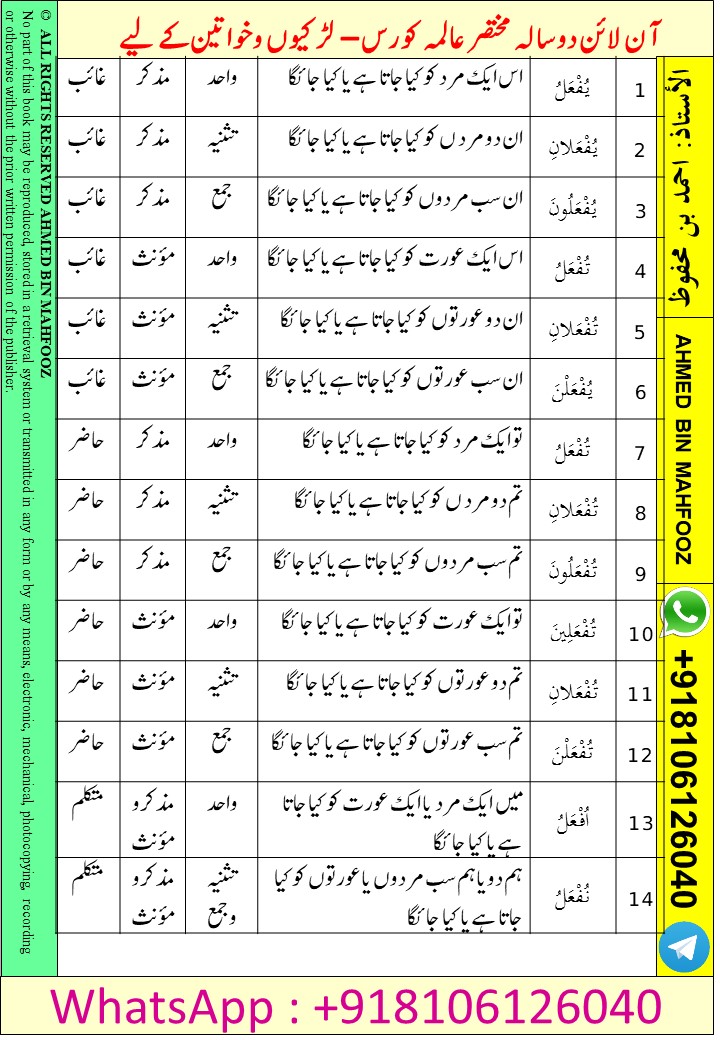 آن لائن دو سالہ مختصر عالمہ کورس – لڑکیوں و خواتین کے لیے
1 يُفْعَلُ اس ایک مرد کو کیا جاتا ہے یا کیا جائگا واحد مذکر غائب
2 يُفْعَلانِ ان دو مردں کو کیا جاتا ہے یا کیا جائگا تثنیہ مذکر غائب
3 يُفْعَلُونَ ان سب مردوں کو کیا جاتا ہے یا کیا جائگا جمع مذکر غائب
4 تُفْعَلُ اس ایک عورت کو کیا جاتا ہے یا کیا جائگا واحد مؤنث غائب
5 تُفْعَلانِ ان دو عورتوں کو کیا جاتا ہے یا کیا جائگا تثنیہ مؤنث غائب
6 يُفْعَلْنَ ان سب عورتوں کو کیا جاتا ہے یا کیا جائگا جمع مؤنث غائب
7 تُفْعَلُ تو ایک مرد کو کیا جاتا ہے یا کیا جائگا واحد مذکر حاضر
8 تُفْعَلانِ تم دو مردں کو کیا جاتا ہے یا کیا جائگا تثنیہ مذکر حاضر
9 تُفْعَلُونَ تم سب مردوں کو کیا جاتا ہے یا کیا جائگا جمع مذکر حاضر
10 تُفْعَلِينَ تو ایک عورت کو کیا جاتا ہے یا کیا جائگا واحد مؤنث حاضر
11 تُفْعَلانِ تم دو عورتوں کو کیا جاتا ہے یا کیا جائگا تثنیہ مؤنث حاضر
12 تُفْعَلْنَ تم سب عورتوں کو کیا جاتا ہے یا کیا جائگا جمع مؤنث حاضر
13 أُفْعَلُ میں ایک مرد یا ایک عورت کو کیا جاتا واحد مذکر و متکلم
ہے یا کیا جائگا مؤنث
14 نُفْعَلُ ہم دو یا ہم سب مردوں یا عورتوں کو کیا تثنیہ مذکر و متکلم
جاتا ہے یا کیا جائگا و جمع مؤنث
الأستاذ: احمد بن محفوظ
AHMED BIN MAHFOOZ
+918106126040
© ALL RIGHTS RESERVED AHMED BIN MAHFOOZ
No part of this book may be reproduced, stored in a retrieval system or transmitted in any form or by any means, electronic, mechanical, photocopying, recording
or otherwise without the prior written permission of the publisher.
WhatsApp : +918106126040